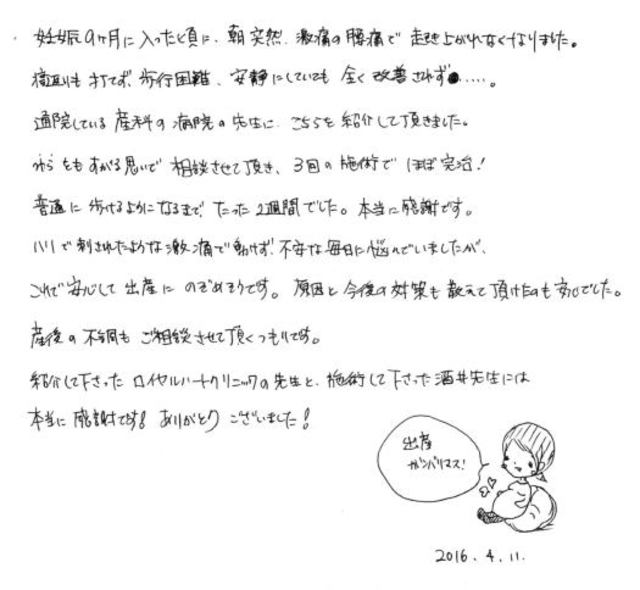 妊娠9ヶ月に入った頃に、朝突然、激痛の腰痛で起き上がれなくなりました。
寝返りも打てず、歩行困難、安静にしていても全く改善されず……。
通院している産科の病院の先生に、こちらを紹介して頂きました。
わらをもすがる思いで相談させて頂き、3回の施術でほぼ完治!
普通に歩けるようになるまで、たった2週間でした。本当に感謝です。
ハリで刺されたような激痛で動けず、不安な毎日に悩んでいましたが、
これで安心して出産にのぞめそうです。原因と今後の対策も教えて頂けたのも安心でした。
産後の不調もご相談させて頂くつもりです。
紹介して下さったロイヤルハートクリニックの先生と、施術して下さった酒井先生には
本当に感謝です!ありがとうございました!
出産
ガンバリマス!
2016.4.11.